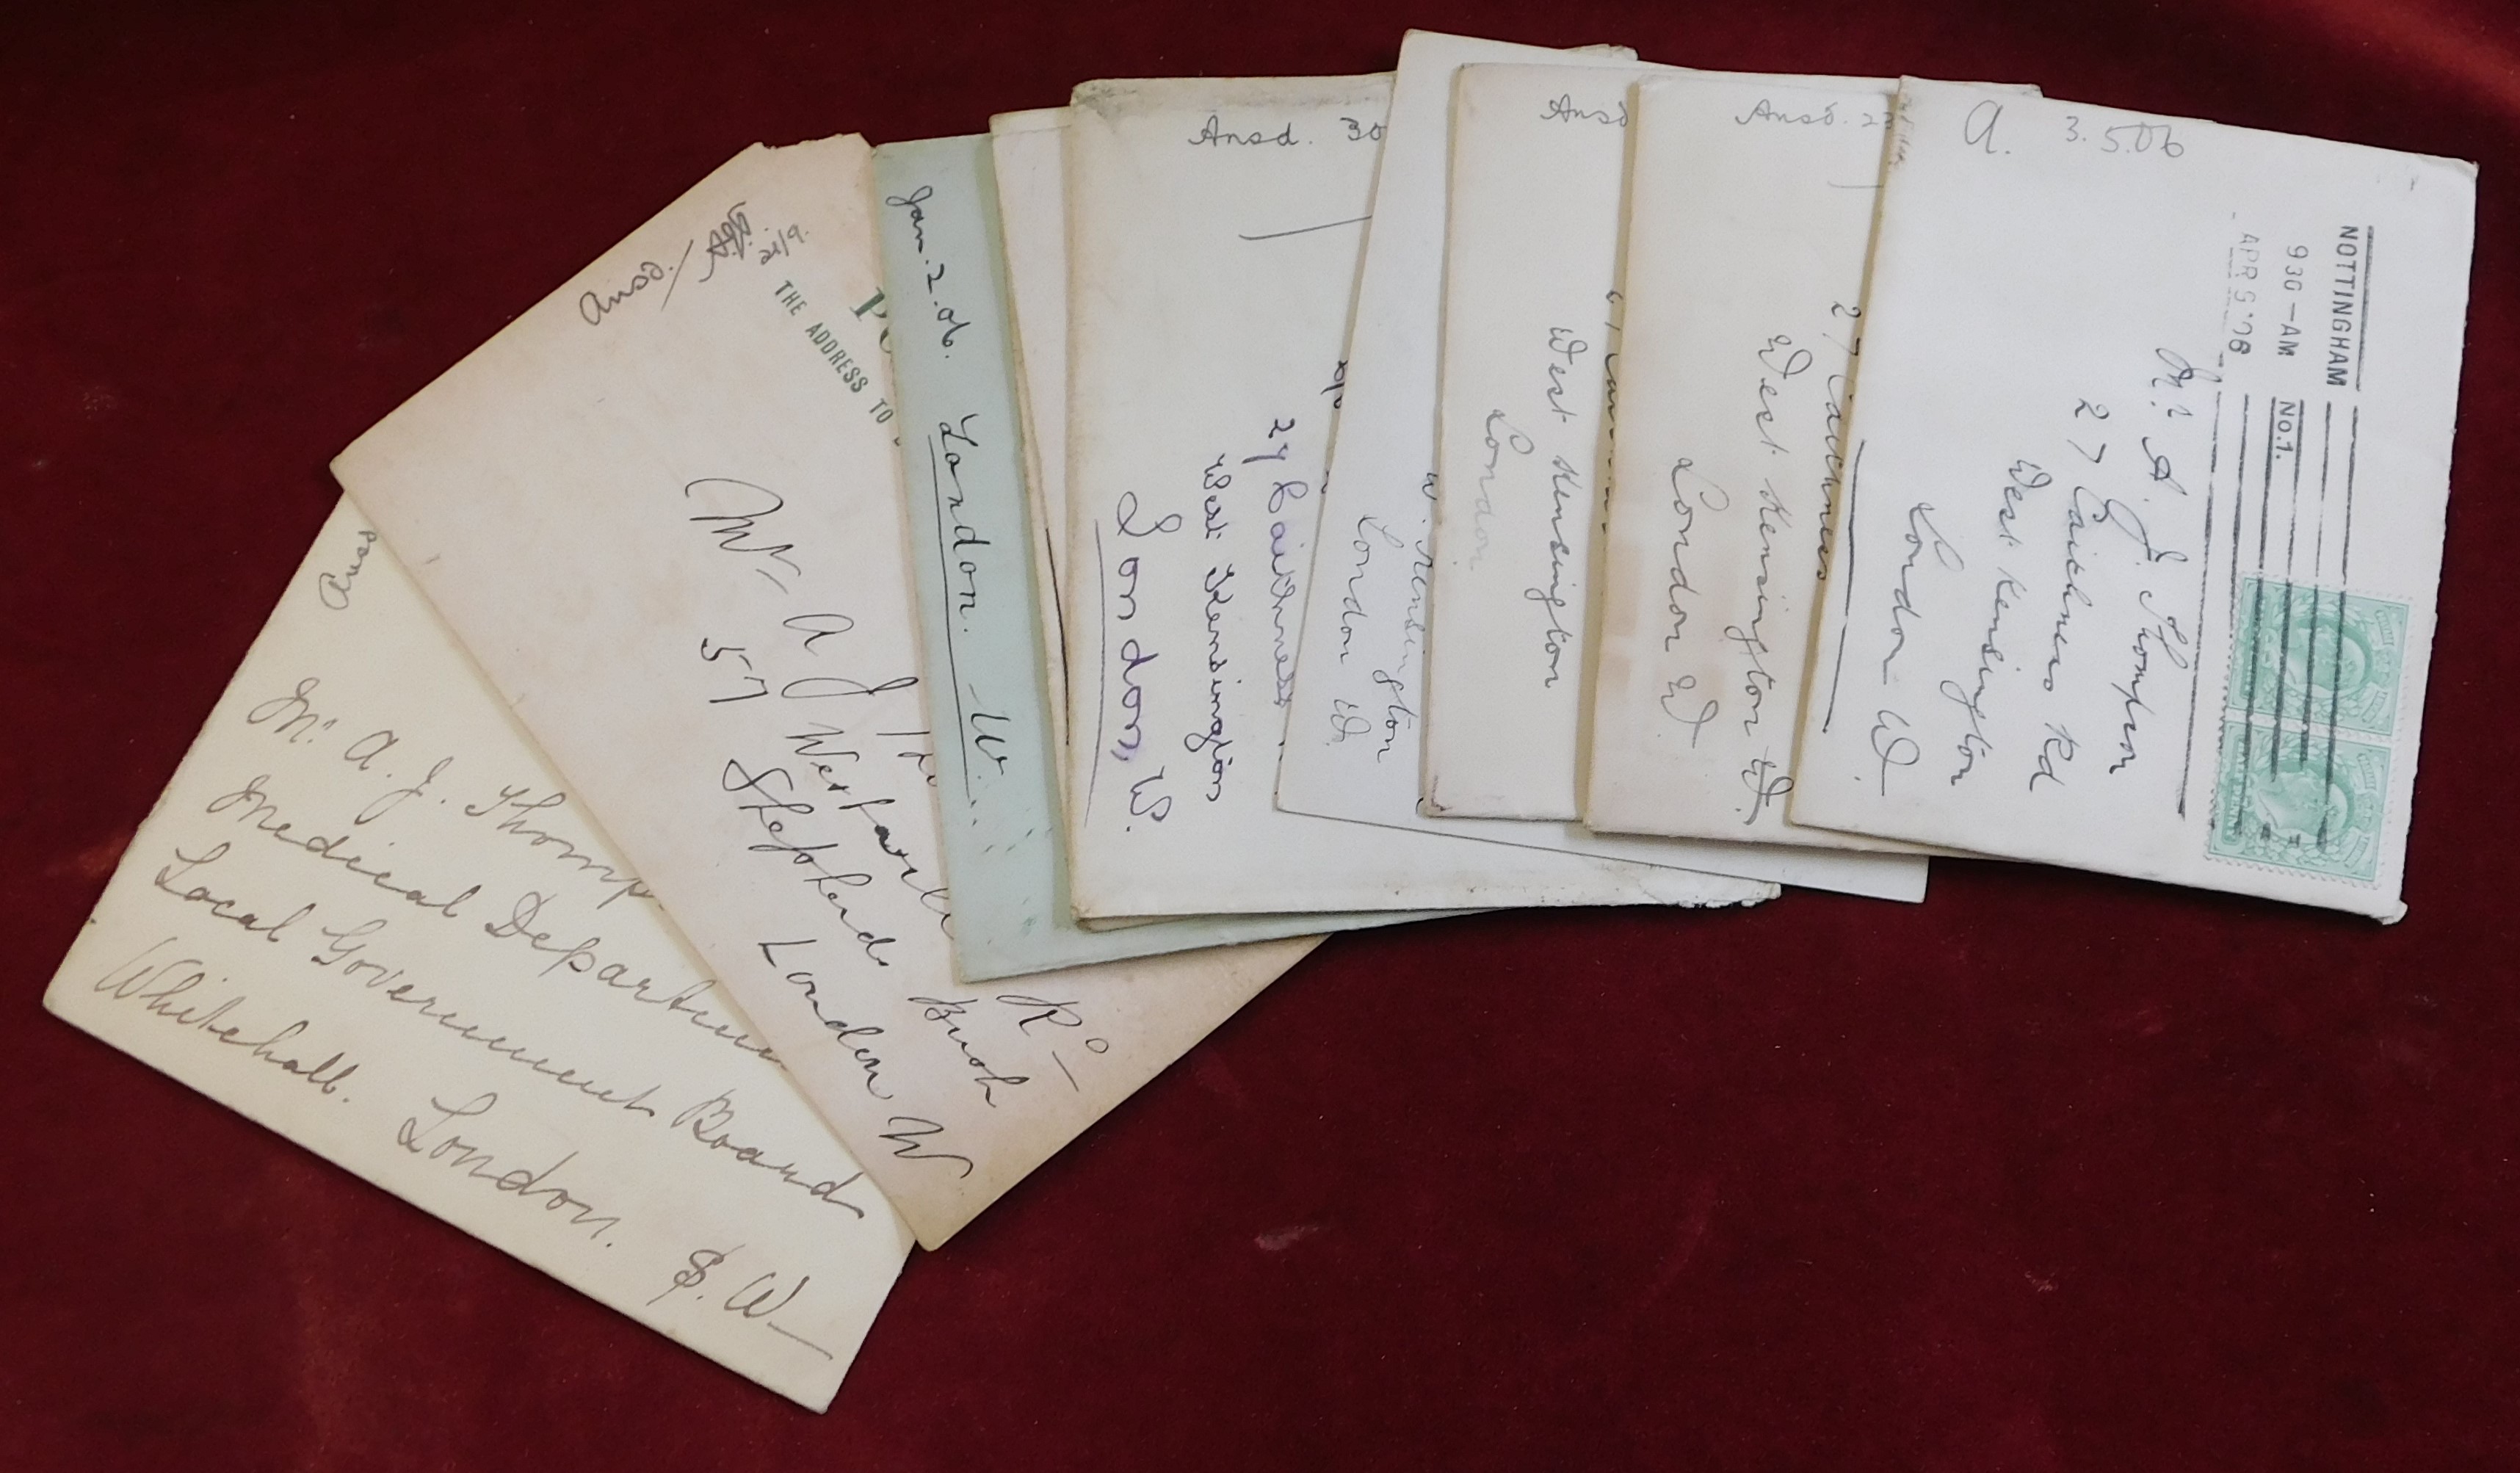 Mr. A. J. Thomp
Medical Departmen
Local Government Board
Whitehall.
London.
S. W.
Ansd.
THE ADDRESS TO
Mr A J Th
57 Westville Rd
Shepherds Bush
London W
Jan. 2. 06.
London. W.
Ansd. 30
27 Caithness
West Kensington
London, W.
W. Kensington
London W.
Ansd
West Kensington
London
Ansd. 23
27 Caithness
West Kensington W.
London W
A. 3.5.06
NOTTINGHAM
9 30-AM No.1.
APR 9 '06
Mr A. J. Thompson
27 Caithness Rd
West Kensington
London W.